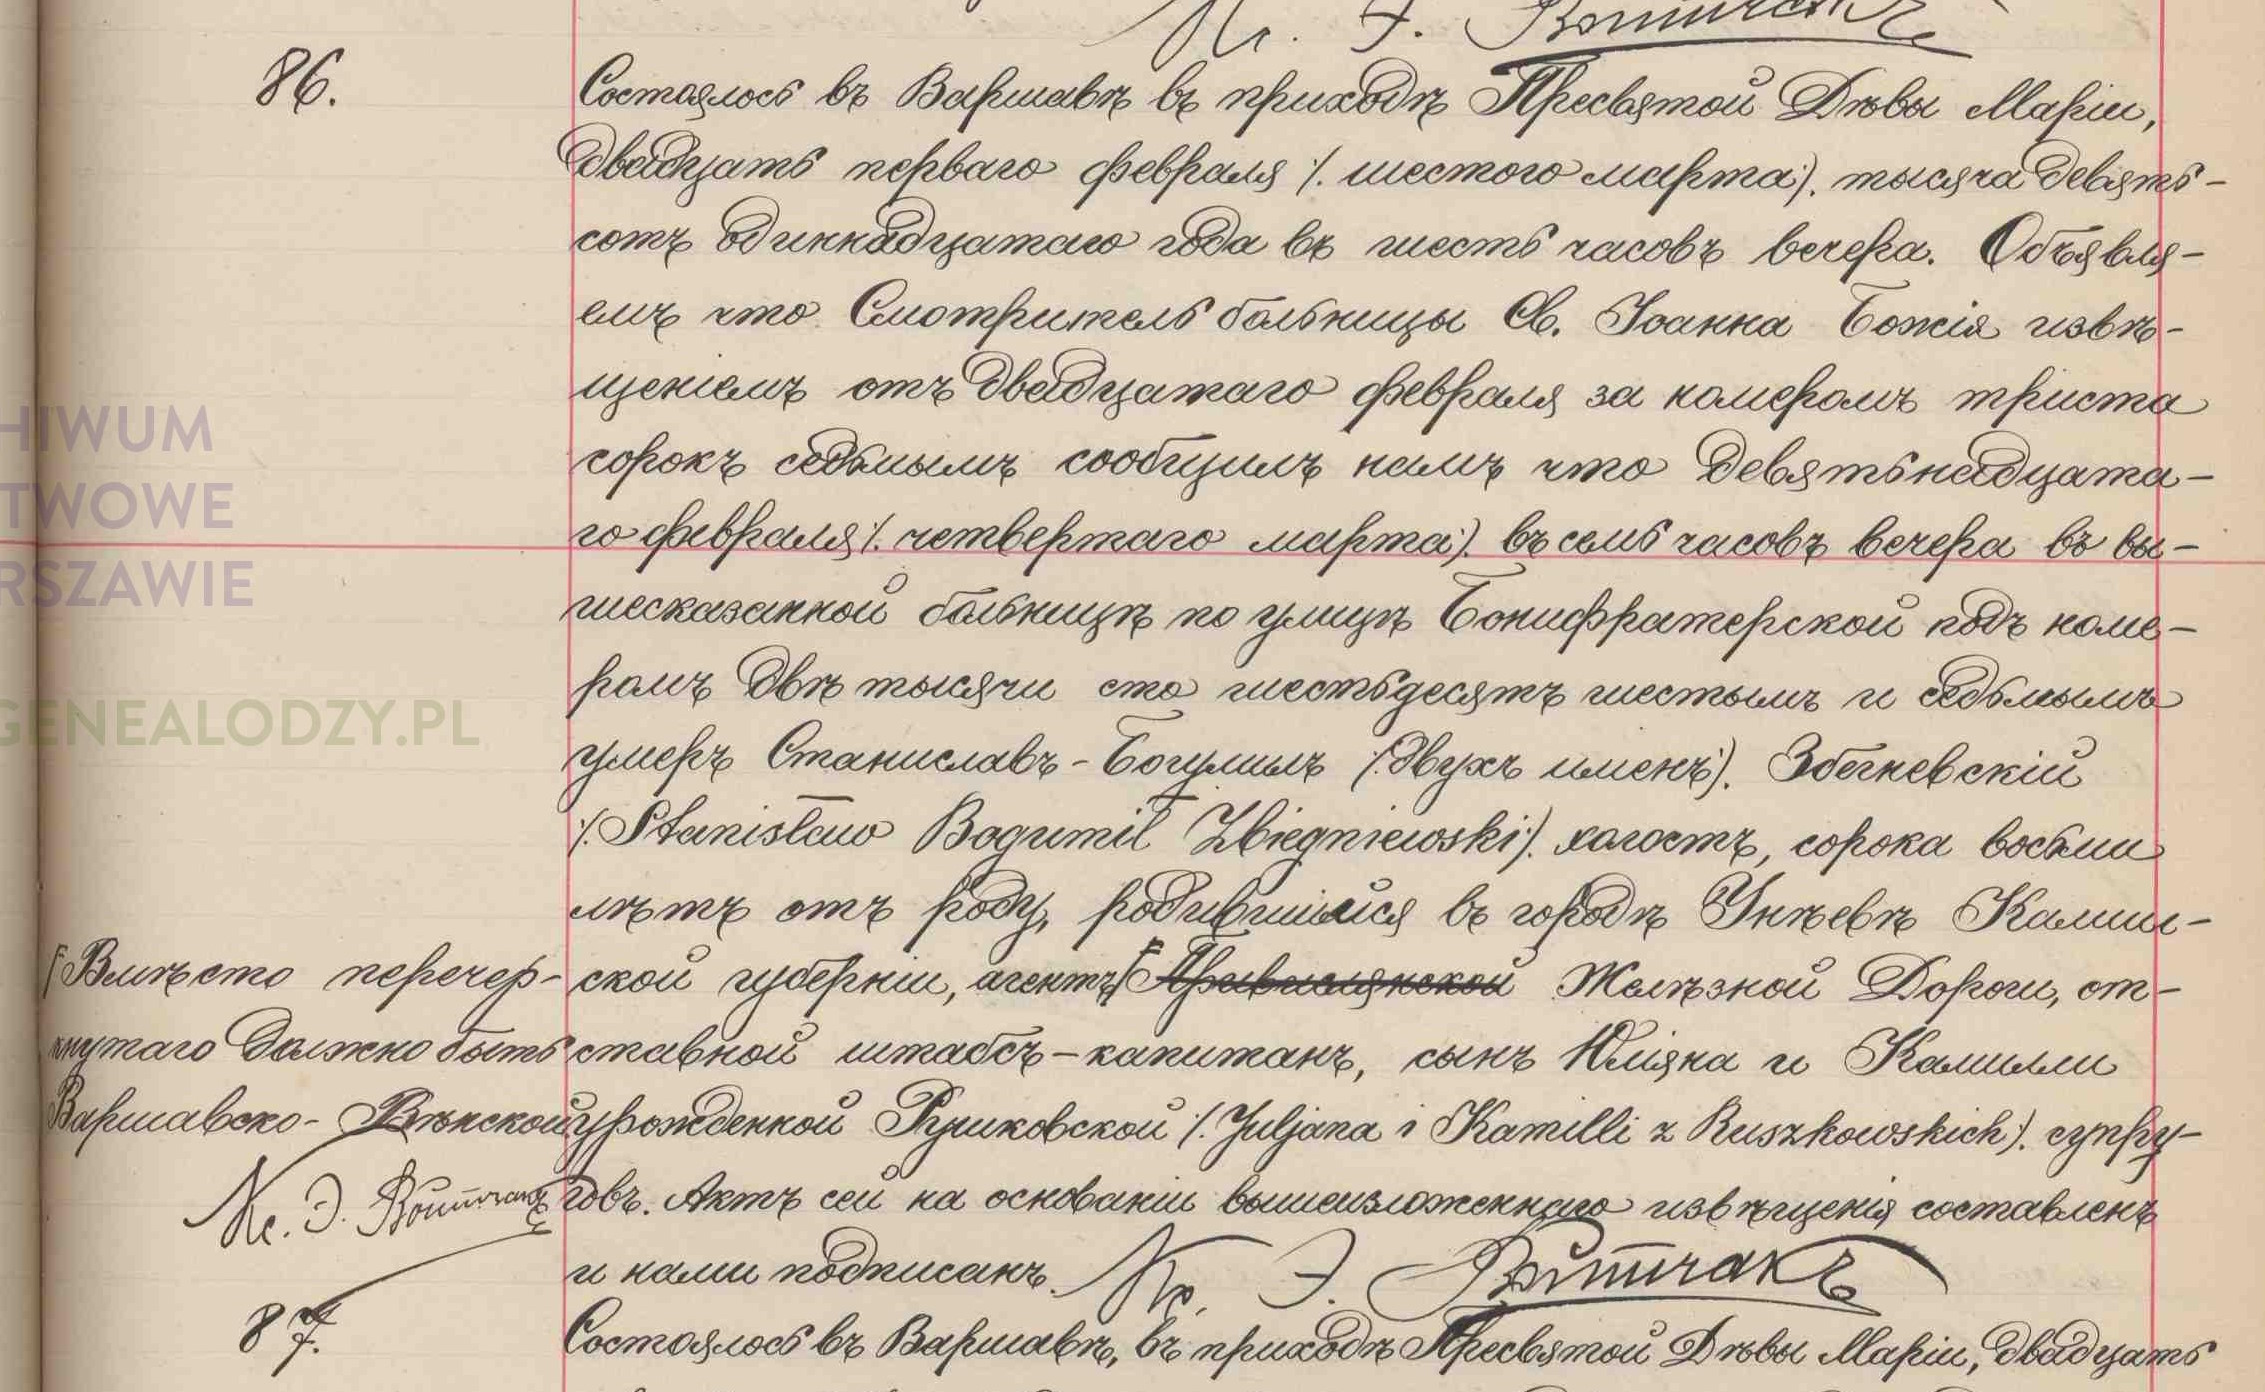 Кс. Э. Войтчакъ
86.
Состоялось въ Варшавѣ въ приходѣ Пресвятой Дѣвы Маріи,
двадцать перваго февраля /: шестого марта :/ тысяча девять-
сотъ одиннадцатаго года въ шесть часовъ вечера. Объявля-
емъ что Смотритель больницы Св. Іоанна Божія извѣ-
щеніемъ отъ двадцатаго февраля за номеромъ триста
сорокъ седьмымъ сообщилъ намъ что девятьнадцата-
го февраля /: четвертаго марта :/ въ семь часовъ вечера въ вы-
шесказанной больницѣ по улицѣ Бонифратерской подъ номе-
ромъ двѣ тысячи сто шестьдесятъ шестымъ и седьмымъ
умеръ Станиславъ-Богумилъ /: двухъ именъ :/ Збегневскій
/: Stanisław Bogumił Zbiegniewski :/ холостъ, сорока восьми
лѣтъ отъ роду, родившійся въ городѣ Унѣевѣ Калиш-
ской губерніи, агентъ Привислянской Желѣзной Дороги, от-
ставной штабсъ-капитанъ, сынъ Юліяна и Камилли
урожденной Рушковской /: Juljana i Kamilli z Ruszkowskich :/ супру-
говъ. Актъ сей на основаніи вышеизложеннаго извѣщенія составленъ
и нами подписанъ. Кс. Э. Войтчакъ
Вмѣсто перечер-
кнутаго должно быть
Варшавско-Вѣнской
Кс. Э. Войтчакъ
87.
Состоялось въ Варшавѣ, въ приходѣ Пресвятой Дѣвы Маріи, двадцать
HIWUM
TWOWE
RSZAWIE
GENEALODZY.PL